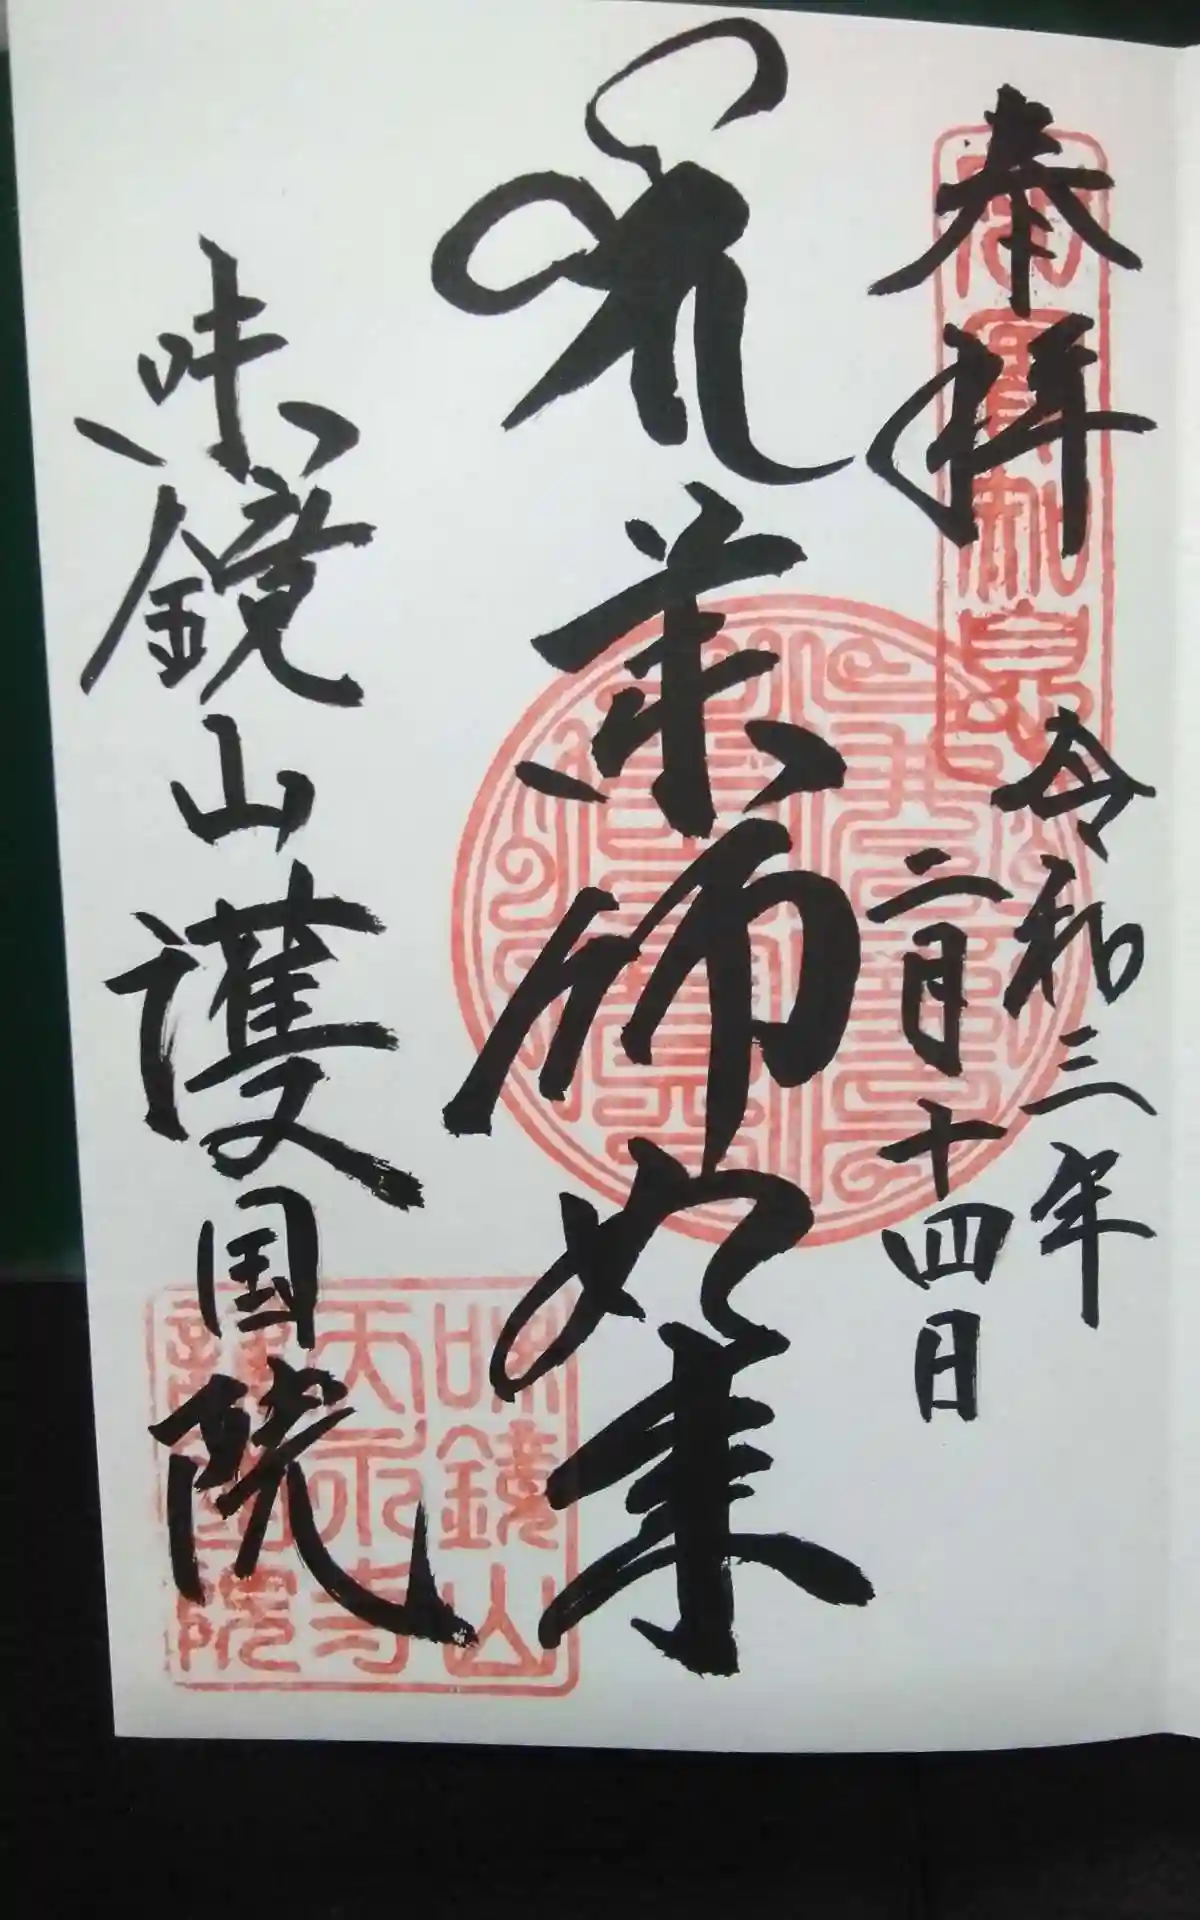 奉拝
令和三年
二月十四日
薬師如来
味鏡山護国院
味鏡山
天永寺
護國院